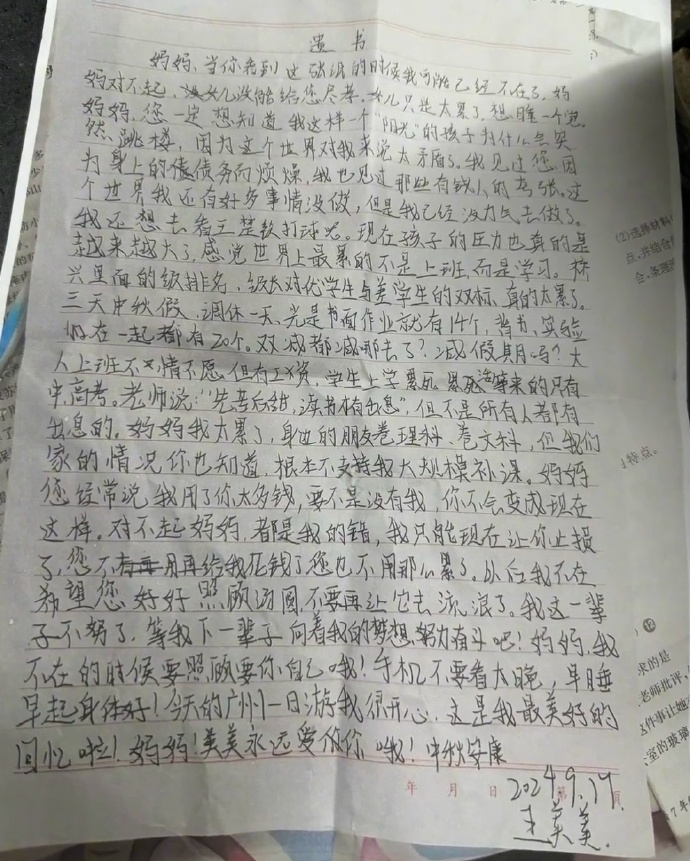 遗书
妈妈，当你看到这张纸的时候我可能已经不在了，妈
妈对不起，女儿没能给您尽孝，女儿只是太累了，想睡一个觉
妈妈，您一定想知道我这样一个"阳光"的孩子为什么会突
然跳楼，因为这个世界对我来说太矛盾了。我见过您因
为身上的债务而烦燥，我也见过那些有钱人的嚣张。这
个世界我还有好多事情没做，但是我已经没力气去做了。
我还想去看王楚钦打球呢。现在孩子的压力也真的是
越来越大了，感觉世界上最累的不是上班，而是学习。
兴里面的级排名，级长对优学生与差学生的双标，真的太累了。
三天中秋假，调休一天，光是书面作业就有14个，背书，实验
加在一起都有20个。双减都减哪去了？减假期吗？大
人上班不情不愿但有工资，学生上学累死累活等来的只有
中高考。老师说："先苦后甜，读书才有出息"，但不是所有人都有
出息的。妈妈我太累了，身边的朋友卷理科，卷文科，但我们
家的情况你也知道，根本不支持我大规模补课。妈妈
您经常说我用了你太多钱，要不是没有我，你不会变成现在
这样。对不起妈妈，都是我的错，我只能现在让你止损
了，您不用再给我花钱了您也不用那么累了。以后我不在
希望您好好照顾汤圆，不要再让它去流浪了。我这一辈
子不努了，等我下一辈子向着我的梦想努力奋斗吧！妈妈，我
不在的时候要照顾要你自己哦！手机不要看太晚，早睡
早起身体好！今天的广州一日游我很开心，这是我最美好的
回忆啦！妈妈！美美永远爱你哦！中秋安康
年 月 日 第 页
2024.9.17
王美美
(2)选择材料
特点。
求的是
老师批评，
室的玻璃